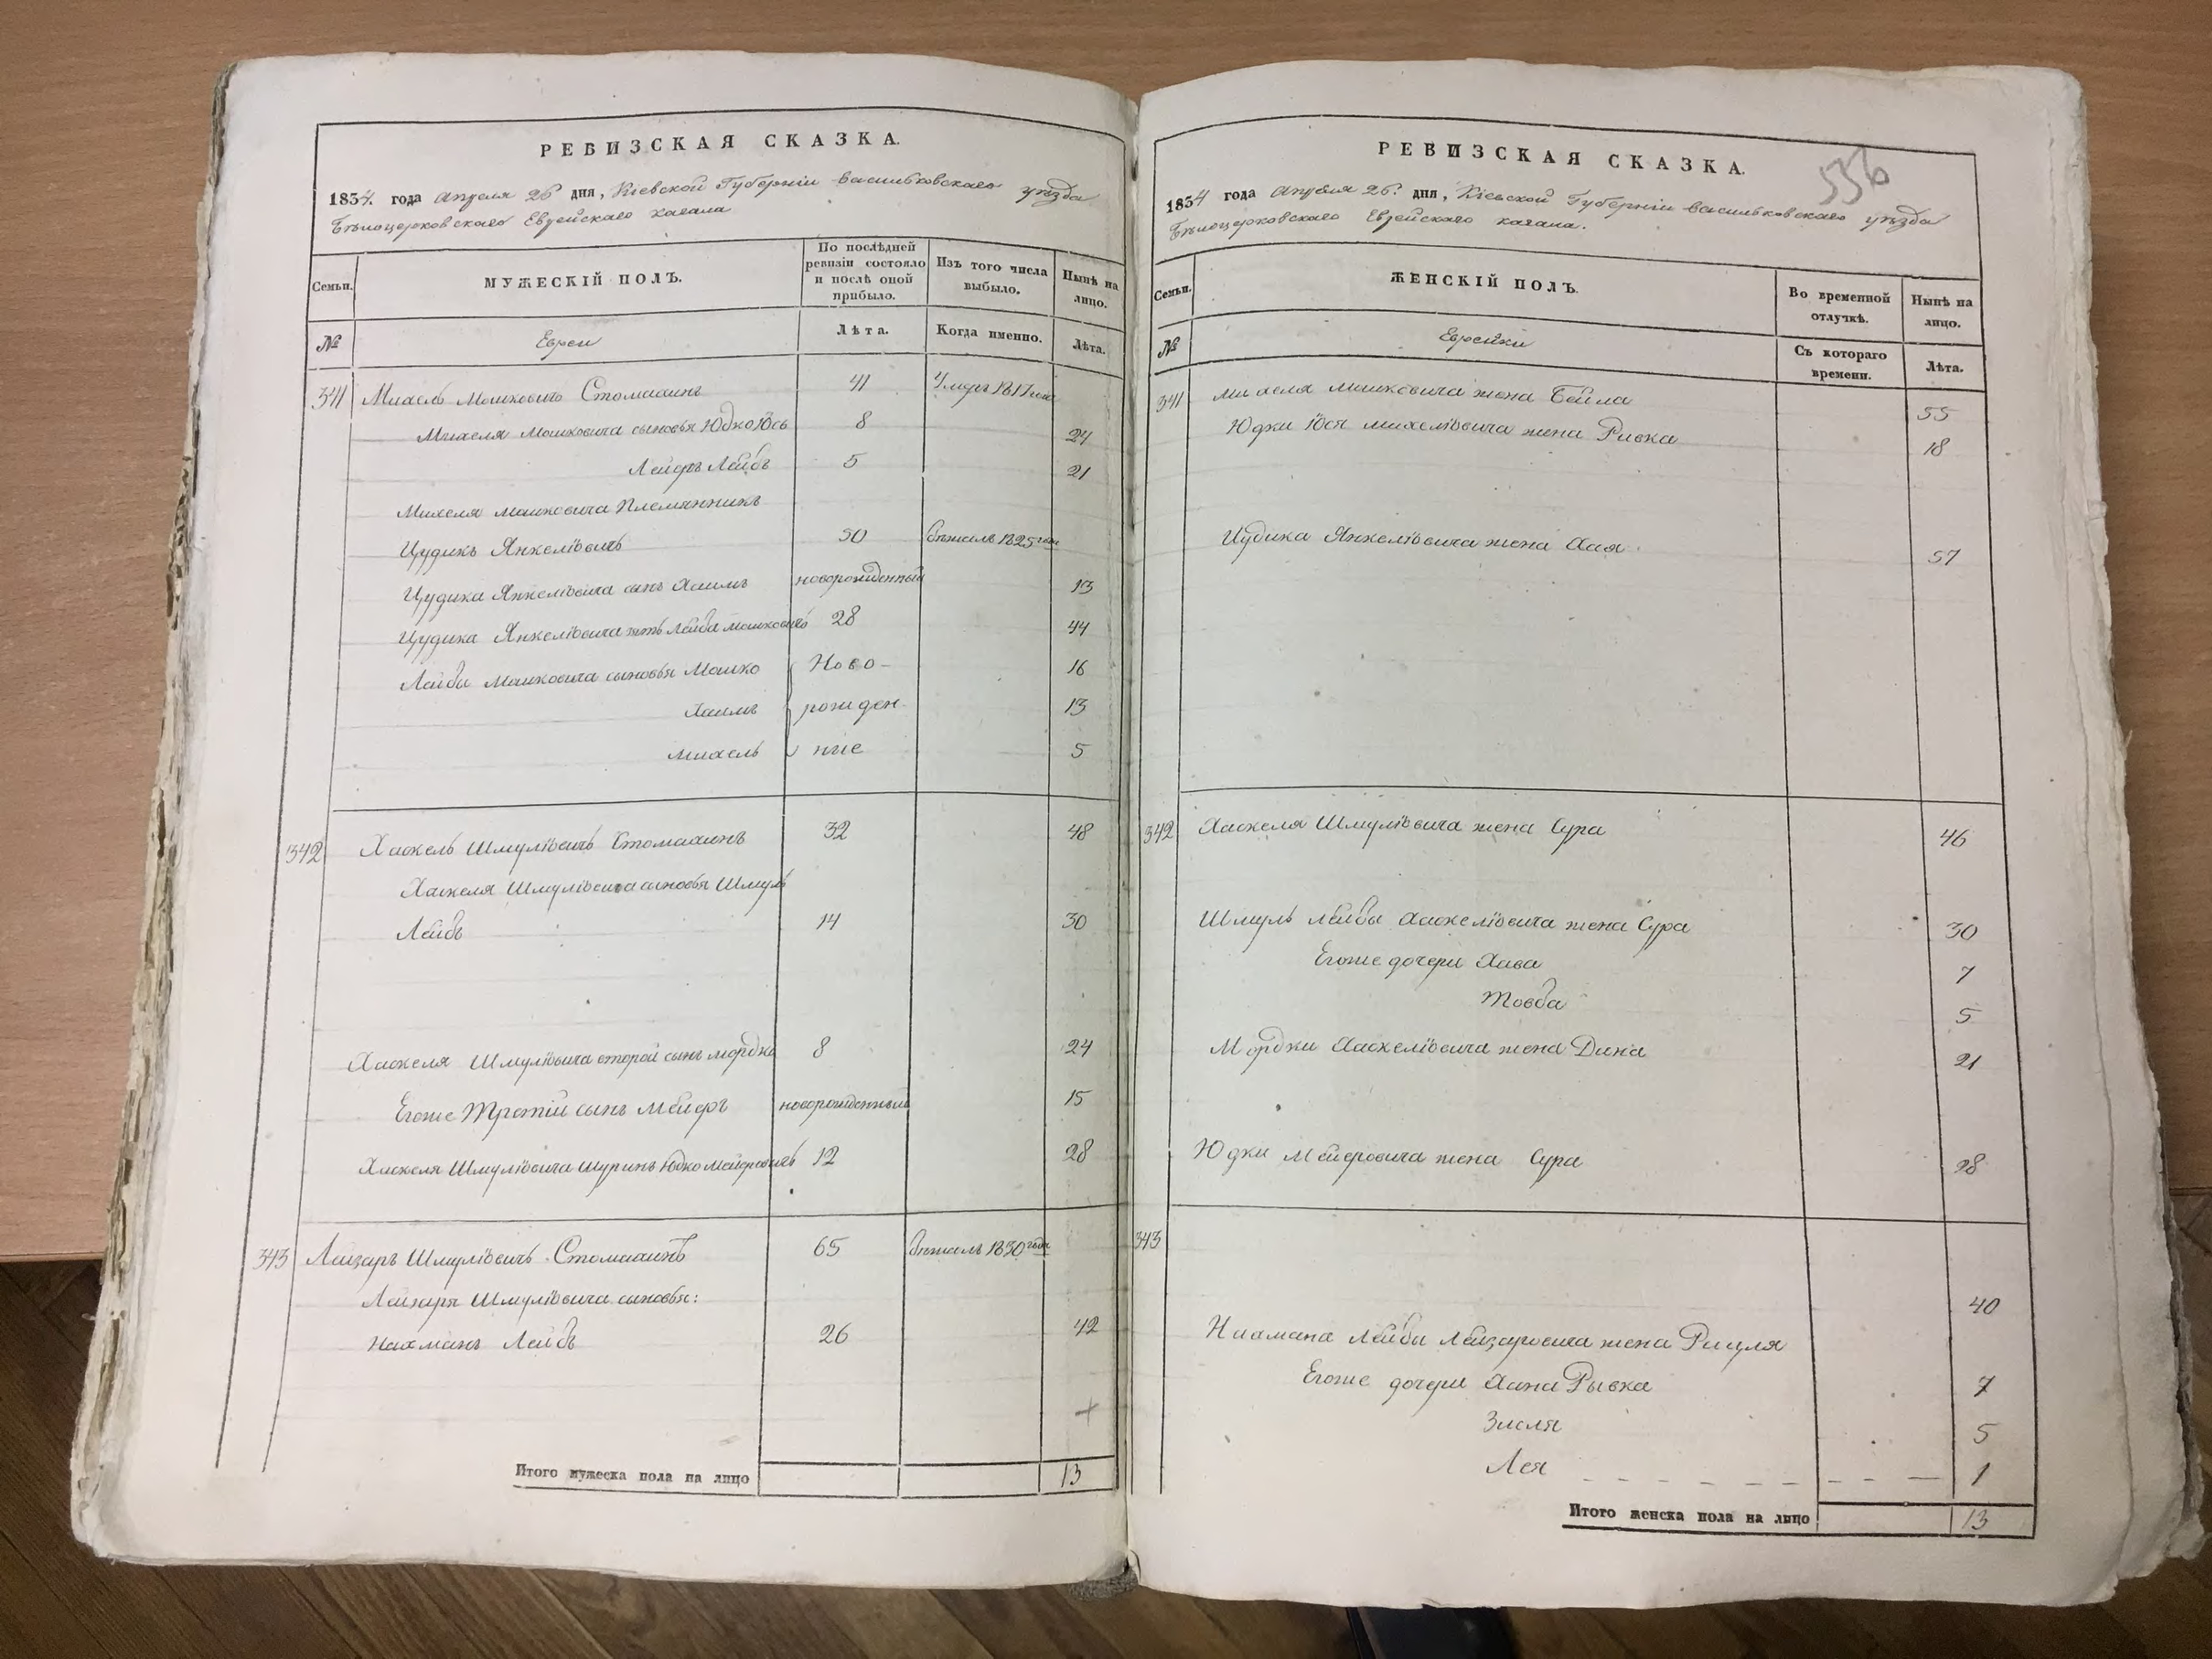 РЕВИЗСКАЯ СКАЗКА.
1834. года Апреля 26 дня, Кіевской Губерніи Васильковскаго уѣзда
Бѣлоцерковскаго Еврейскаго кагала
Семьи.
МУЖЕСКІЙ ПОЛЪ.
По послѣдней ревизіи состояло и послѣ оной прибыло.
Изъ того числа выбыло.
Нынѣ на лицо.
№
Евреи
Лѣта.
Когда именно.
Лѣта.
341 Михель Мошковичъ Стомахинъ 41 Умеръ 1817 года
Михеля Мошковича сыновья Юдко Юсь 8 24
Лейбъ 5 21
Михеля Мошковича Племянникъ
Цудикъ Янкелювичъ 50 бѣжалъ 1825 года
Цудика Янкелювича сынъ Хаимъ новорожденный 13
Цудика Янкелювича зять Лейба Мошковичъ 28 44
Лейбы Мошковича сыновья Мошко Ново- 16
Хаимъ рожден- 13
Михель ние 5
342 Хаскель Шмулювичъ Стомахинъ 32 48
Хаскеля Шмулювича сыновья Шмуль
Лейбъ 14 30
Хаскеля Шмулювича второй сынъ Мордко 8 24
Егоже Третій сынъ Мейеръ новорожденный 15
Хаскеля Шмулювича Шуринъ Юдко Мейеровичъ 12 28
343 Лейзаръ Шмулювичъ Стомахинъ 65 бѣжалъ 1830 года
Лейзаря Шмулювича сыновья:
Нахманъ Лейбъ 26 42
Итого мужеска пола на лицо 13
РЕВИЗСКАЯ СКАЗКА.
536
1834 года Апреля 26. дня, Кіевской Губерніи Васильковскаго уѣзда
Бѣлоцерковскаго Еврейскаго кагала.
Семьи.
ЖЕНСКІЙ ПОЛЪ.
Во временной отлучкѣ.
Нынѣ на лицо.
№
Еврейки
Съ котораго времени.
Лѣта.
341 Михеля Мошковича жена Бейла 55
Юдки Юся Михелювича жена Ривка 18
Цудика Янкелювича жена Хая 57
342 Хаскеля Шмулювича жена Сура 46
Шмуль Лейбы Хаскелювича жена Сура 30
Егоже дочери Хава 7
Товба 5
Мордки Хаскелювича жена Дина 21
Юдки Мейеровича жена Сура 28
343
40
Нахмана Лейбы Лейзаровича жена Рацля
Егоже дочери Хана Рывка 7
Злсля 5
Лея 1
Итого женска пола на лицо 13